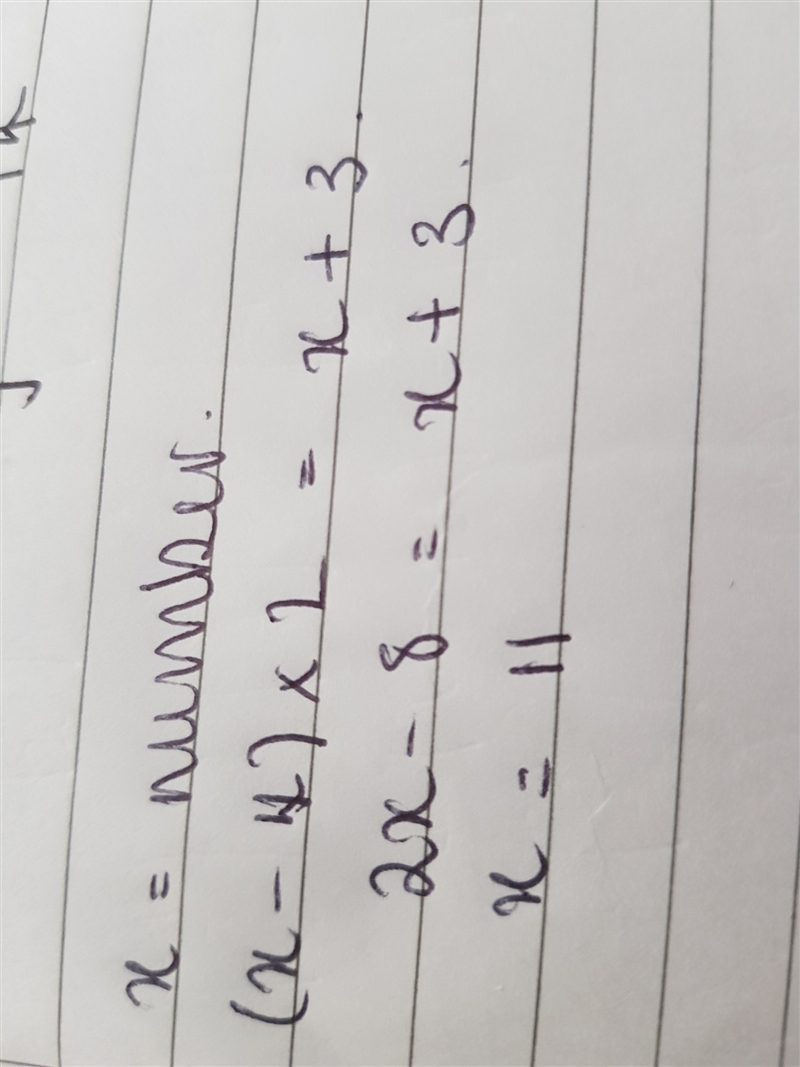 x = number.
(x - 4) × 2 = x + 3.
2x - 8 = x + 3.
x = 11